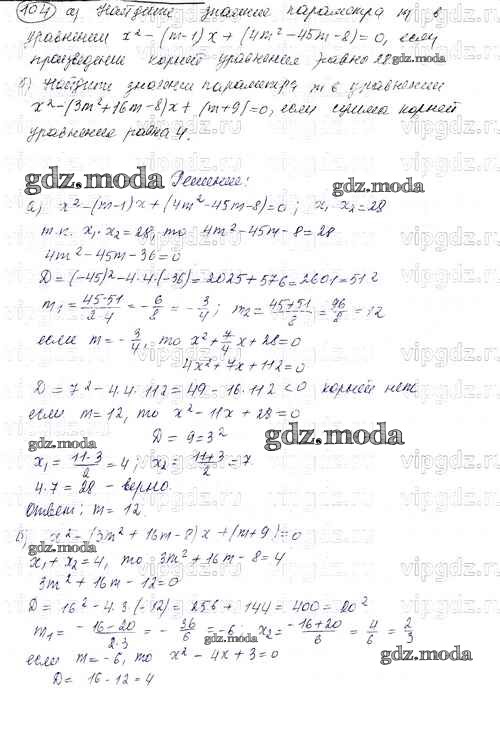 104 а) Найдите значение параметра m в
уравнении x² - (m-1)x + (4m² - 45m - 8) = 0, если
произведение корней уравнения равно 28.
б) Найдите значения параметра m в уравнении
x² - (3m² + 16m - 8)x + (m+9) = 0, если сумма корней
уравнения равна 4.
gdz.moda Решение:
а) x² - (m-1)x + (4m² - 45m - 8) = 0; x₁·x₂ = 28
т.к. x₁·x₂ = 28, то 4m² - 45m - 8 = 28
4m² - 45m - 36 = 0
D = (-45)² - 4·4·(-36) = 2025 + 576 = 2601 = 51²
m₁ = (45-51)/(2·4) = -6/8 = -3/4; m₂ = (45+51)/8 = 96/8 = 12
если m = -3/4, то x² + 7/4 x + 28 = 0
4x² + 7x + 112 = 0
D = 7² - 4·4·112 = 49 - 16·112 < 0 корней нет
если m = 12, то x² - 11x + 28 = 0
D = 9 = 3²
gdz.moda
x₁ = (11-3)/2 = 4; x₂ = (11+3)/2 = 7
4·7 = 28 - верно.
Ответ: m = 12
б) x² - (3m² + 16m - 8)x + (m+9) = 0
x₁ + x₂ = 4, то 3m² + 16m - 8 = 4
3m² + 16m - 12 = 0
D = 16² - 4·3·(-12) = 256 + 144 = 400 = 20²
m₁ = (-16-20)/(2·3) = -36/6 = -6; x₂ = (-16+20)/6 = 4/6 = 2/3
если m = -6, то x² - 4x + 3 = 0
D = 16 - 12 = 4